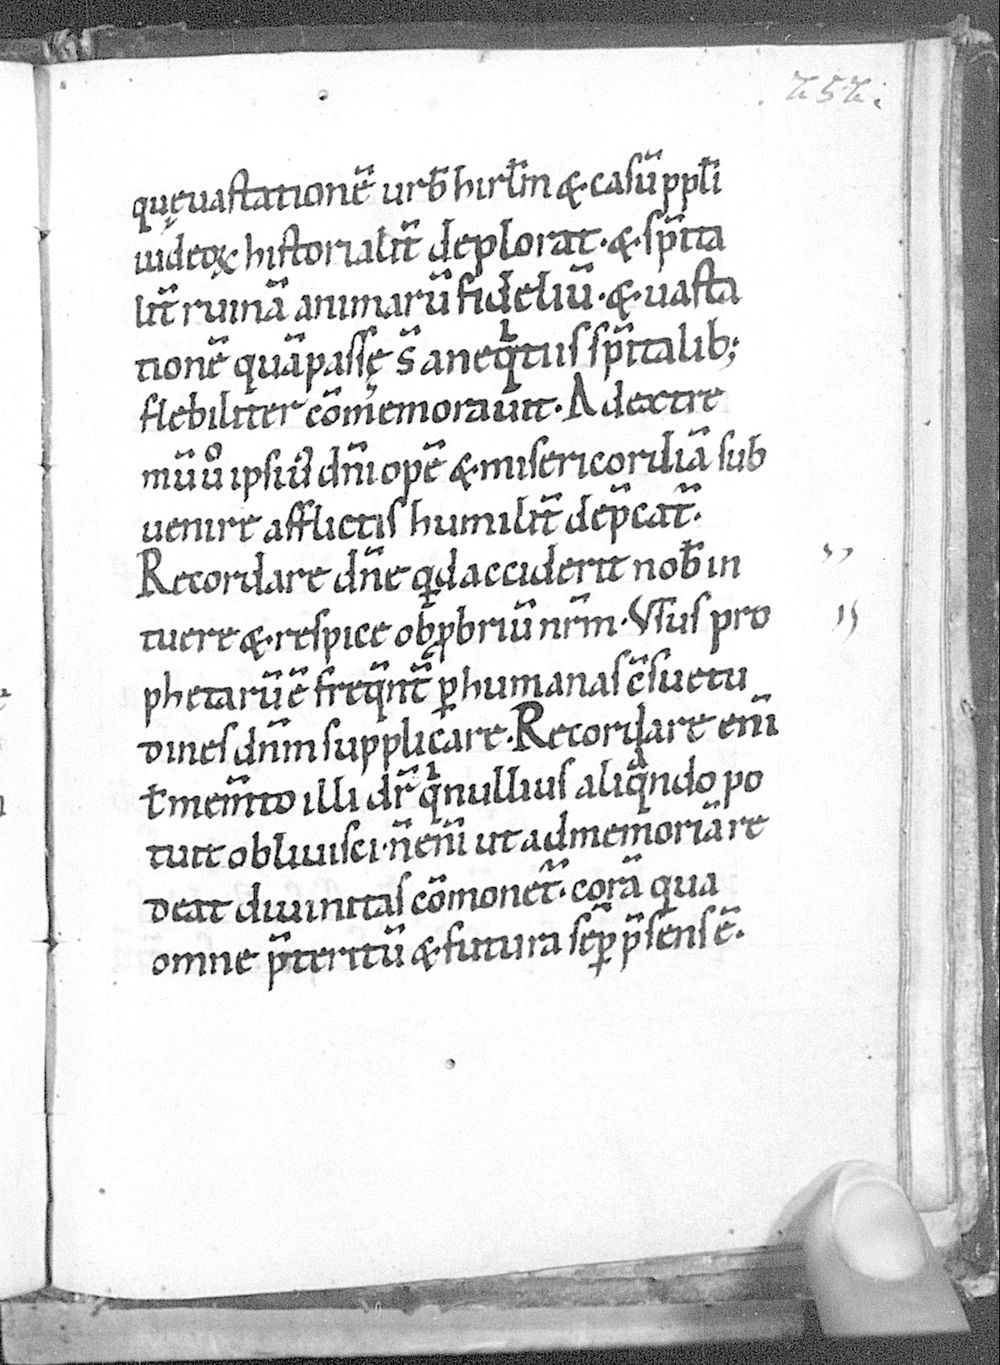 252.
quę uastationẽ urb̃ hirl̃m &·casũ ppl̃i
iudeoꝝ historialit̃ deplorat·&·sp̃ita
lit̃ ruinã animarũ fideliũ·&·uasta
tionẽ quã passę s̃ aneq̃tiis sp̃italib;
flebiliter cõmemorauñt·Adextre
mũ ů ipsiꝰ dñi opẽ &·misericordiã sub
uenire afflictis humilit̃ dep̃cat̃·
Recordare dñe qd acciderit nob̃ in
tuere &·respice obꝓbriũ nr̃m·Vsus pro
phetarũ ẽ freq̃nt̃ ꝑ humanas c̃suetu
dines dñm supplicare·Recordare eñi
t̃ mem̃to illi dr̃ qͥ nullius aliq̃ndo po
tuit obliuisci·ñ eñi ut ad memoriã re
deat diuinitas cõmonet̃·corã qua
omne p̃teritũ &·futura sẽꝑ p̃sens ẽ·